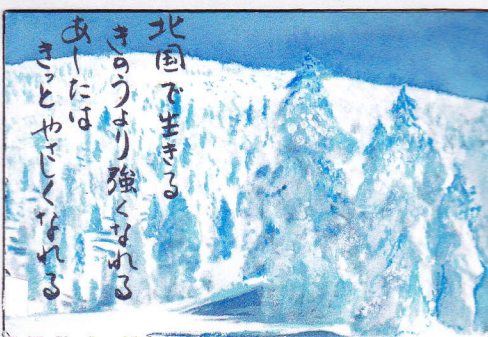 北国で生きる
きのうより強くなれる
あしたは
きっとやさしくなれる